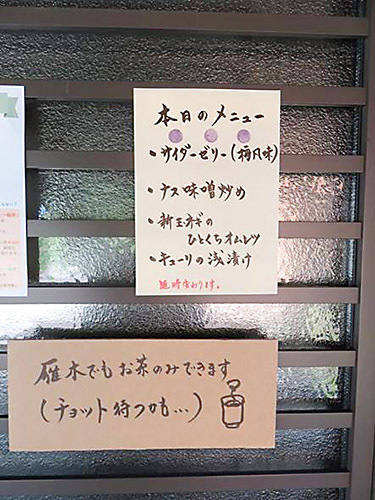 本日のメニュー
・サイダーゼリー(梅風味)
・ナス味噌炒め
・新玉ネギの
ひとくちオムレツ
・キューリの浅漬け
随時変わります。
雁木でもお茶のみできます
(チョット待つかも…)